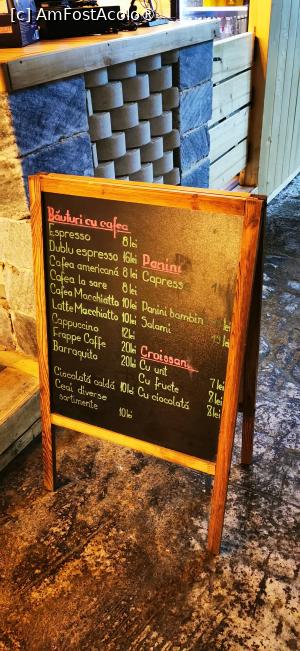 [c] AmFostAcolo®
Băuturi cu cafea
Espresso 8 lei
Dublu espresso 16 lei
Cafea americană 8 lei
Cafea la sare 8 lei
Cafea Macchiatto 10 lei
Latte Macchiatto 10 lei
Cappuccino 12 lei
Frappe Caffe 20 lei
Barraquito 20 lei
Ciocolată caldă 10 lei
Ceai diverse
sortimente 10 lei
Panini
Capress
Panini bambin
Salami
Croissan
Cu unt 7 lei
Cu fructe 8 lei
Cu ciocolată 8 lei